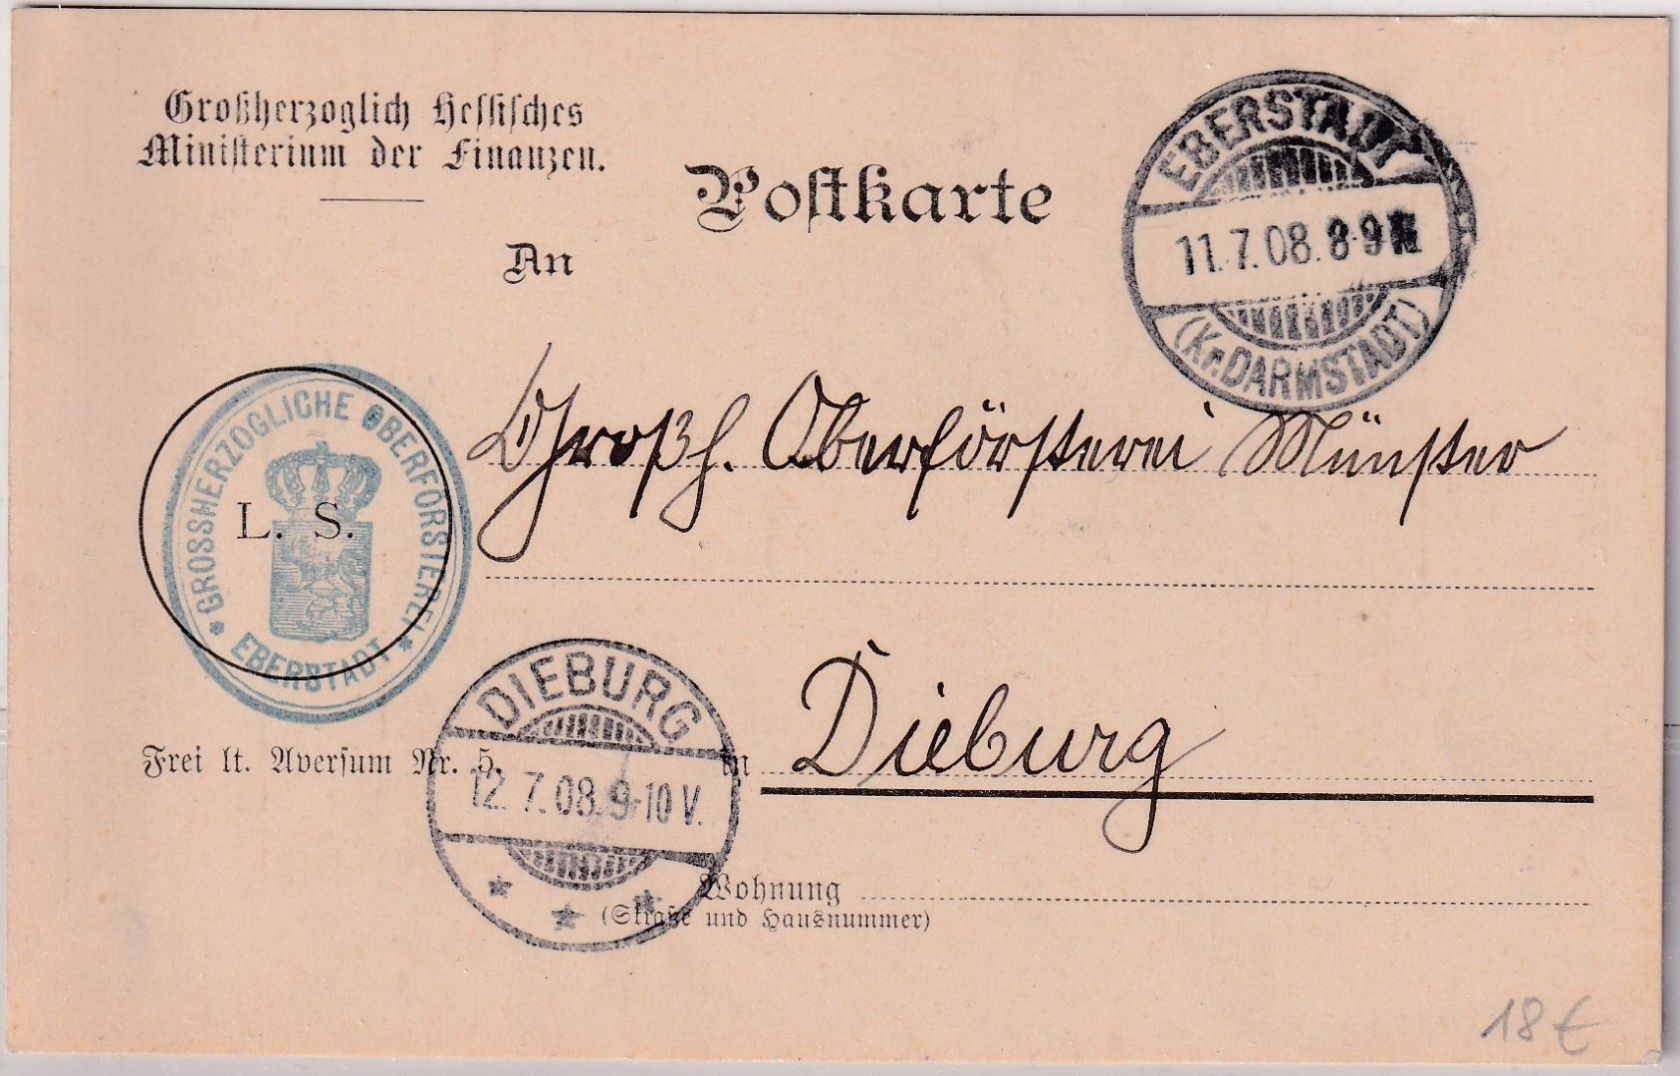 Großherzoglich Hessisches
Ministerium der Finanzen.
Postkarte
An
EBERSTADT
11.7.08. 8-9 N
(Kr. DARMSTADT)
Großh. Oberförsterei Münster
GROSSHERZOGLICHE OBERFÖRSTEREI
L. S.
* EBERSTADT *
DIEBURG
12.7.08. 9-10 V.
* * *
Frei lt. Aversum Nr. 5.
in Dieburg
Wohnung
(Straße und Hausnummer)
18 €